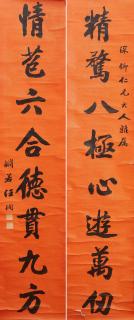 精騖八極心遊萬仞
深卿仁兄大人雅屬
情苞六合德貫九方